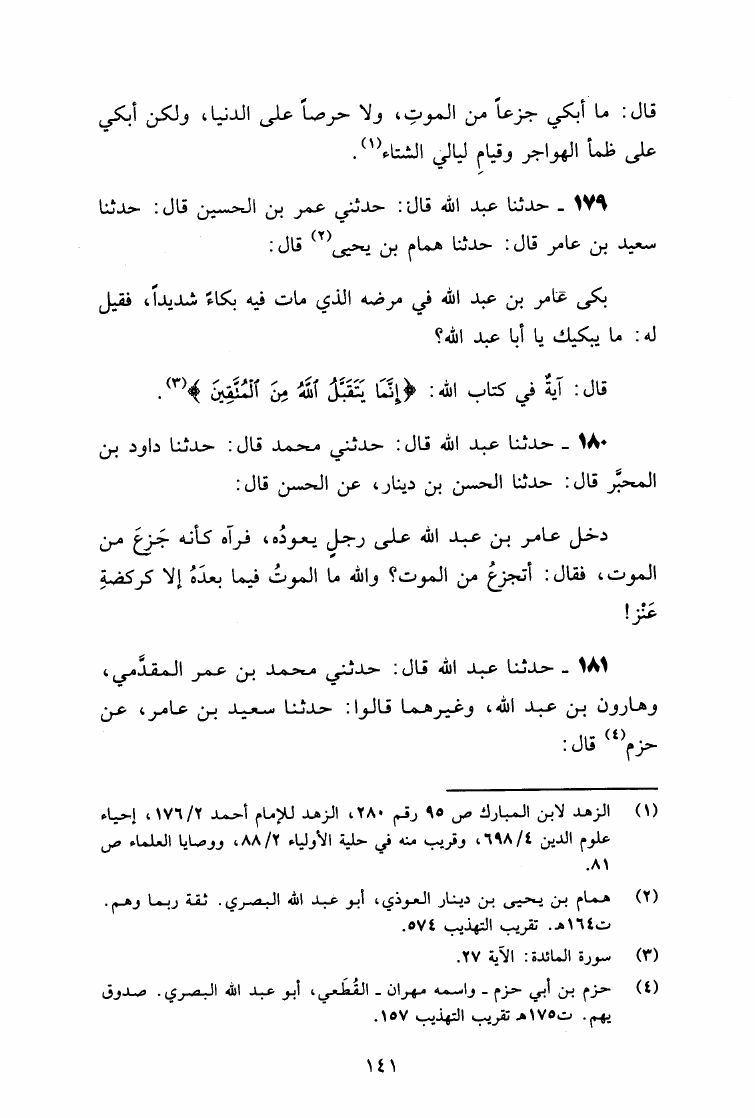 قال: ما أبكي جزعاً من الموتِ، ولا حرصاً على الدنيا، ولكن أبكي
على ظمأ الهواجر وقيامِ ليالي الشتاء(١).
١٧٩ ـ حدثنا عبد الله قال: حدثني عمر بن الحسين قال: حدثنا
سعيد بن عامر قال: حدثنا همام بن يحيى(٢) قال:
بكى عامر بن عبد الله في مرضه الذي مات فيه بكاءً شديداً، فقيل
له: ما يبكيك يا أبا عبد الله؟
قال: آيةٌ في كتاب الله: ﴿إِنَّمَا يَتَقَبَّلُ ٱللَّهُ مِنَ ٱلْمُتَّقِينَ﴾(٣).
١٨٠ ـ حدثنا عبد الله قال: حدثني محمد قال: حدثنا داود بن
المحبَّر قال: حدثنا الحسن بن دينار، عن الحسن قال:
دخل عامر بن عبد الله على رجلٍ يعودُه، فرآه كأنه جَزِعَ من
الموت، فقال: أتجزعُ من الموت؟ والله ما الموتُ فيما بعدَهُ إلا كركضةِ
عَنْز!
١٨١ ـ حدثنا عبد الله قال: حدثني محمد بن عمر المقدَّمي،
وهارون بن عبد الله، وغيرهما قالوا: حدثنا سعيد بن عامر، عن
حزم(٤) قال:
(١) الزهد لابن المبارك ص ٩٥ رقم ٢٨٠، الزهد للإمام أحمد ١٧٦/٢، إحياء
علوم الدين ٦٩٨/٤، وقريب منه في حلية الأولياء ٨٨/٢، ووصايا العلماء ص
٨١.
(٢) همام بن يحيى بن دينار العوذي، أبو عبد الله البصري. ثقة ربما وهم.
ت١٦٤هـ. تقريب التهذيب ٥٧٤.
(٣) سورة المائدة: الآية ٢٧.
(٤) حزم بن أبي حزم ـ واسمه مهران ـ القُطَعي، أبو عبد الله البصري. صدوق
يهم. ت١٧٥هـ تقريب التهذيب ١٥٧.
١٤١